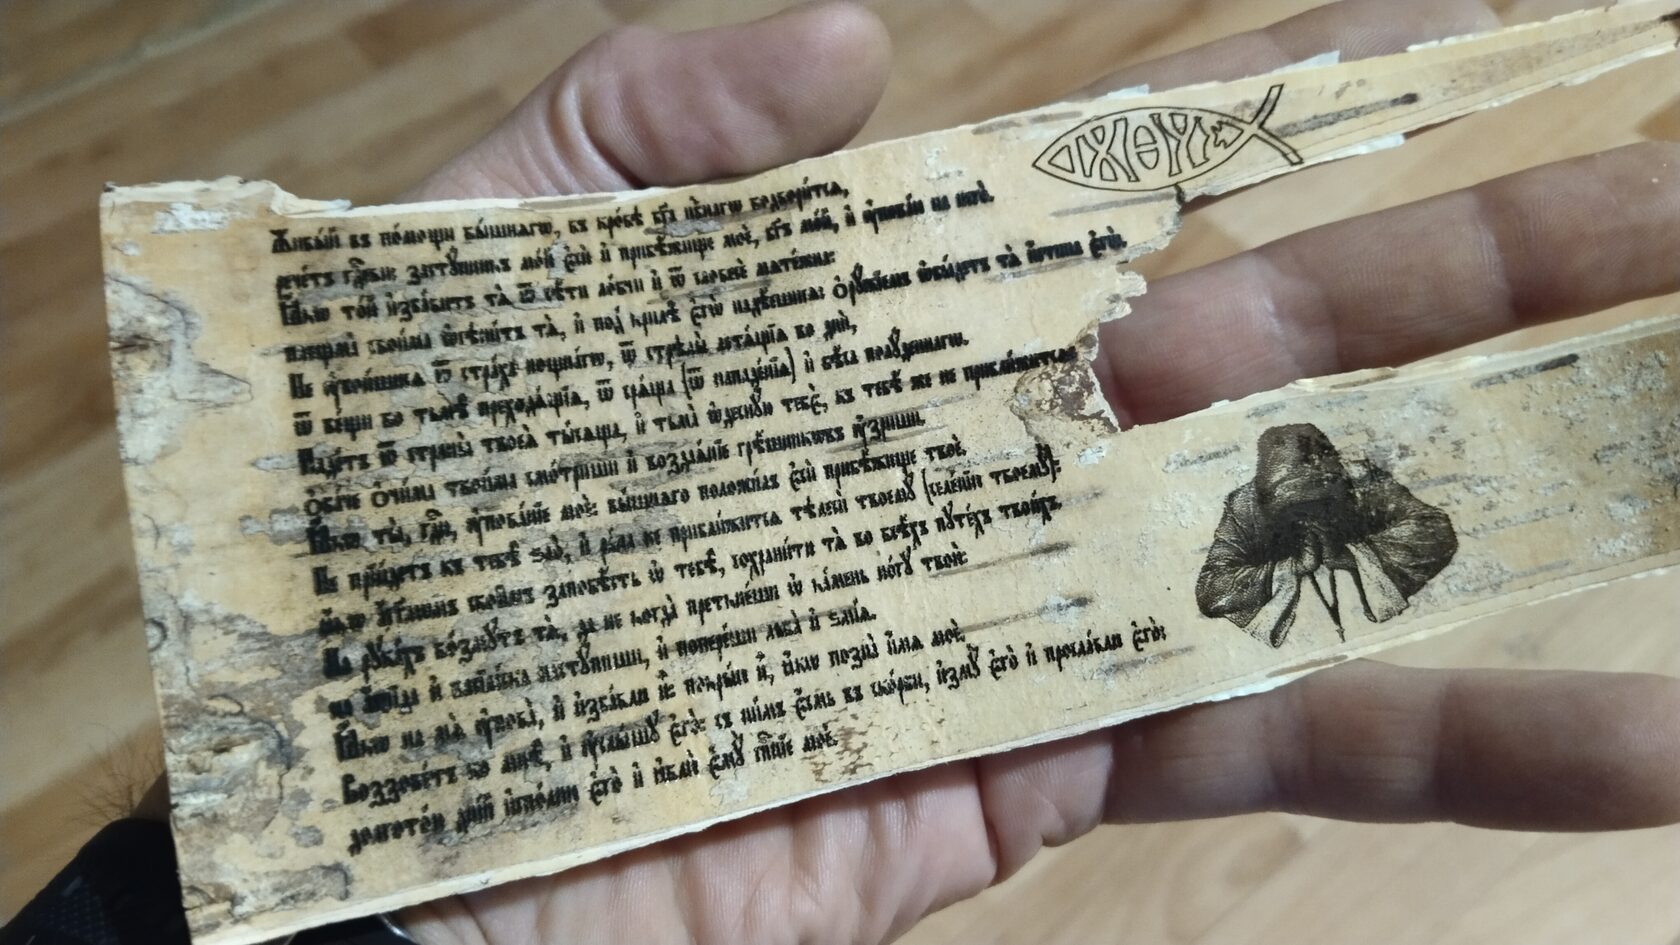 Живы́й въ по́мощи вы́шнягѡ, въ кро́вѣ бг҃а нбⷭ҇нагѡ водвори́тсѧ,
рече́тъ гдⷭ҇еви: застꙋ́пникъ мо́й є҆сѝ и҆ прибѣ́жище моѐ, бг҃ъ мо́й, и҆ ᲂу҆пова́ю на него̀.
Ꙗ҆́кѡ то́й и҆зба́витъ тѧ̀ ѿ сѣ́ти ло́вчи и҆ ѿ словесѐ мѧте́жна:
плещма̀ свои́ма ѡ҆сѣни́тъ тѧ̀, и҆ под̾ крилѣ̑ є҆гѡ̀ надѣ́ешисѧ: ѻ҆рꙋ́жїемъ ѡ҆бы́детъ тѧ̀ и҆́стина є҆гѡ̀.
Не ᲂу҆бои́шисѧ ѿ стра́ха нощна́гѡ, ѿ стрѣлы̀ летѧ́щїѧ во днѝ,
ѿ ве́щи во тмѣ̀ преходѧ́щїѧ, ѿ срѧ́ща [ѿ нападе́нїѧ] и҆ бѣ́са полꙋ́деннагѡ.
Паде́тъ ѿ страны̀ твоеѧ̀ ты́сѧща, и҆ тма̀ ѡ҆деснꙋ́ю тебє̀, къ тебѣ́ же не прибли́житсѧ:
ѻ҆ба́че ѻ҆чи́ма твои́ма смо́триши и҆ воздаѧ́нїе грѣ́шникѡвъ ᲂу҆́зриши.
Ꙗ҆́кѡ ты̀, гдⷭ҇и, ᲂу҆пова́нїе моѐ: вы́шнѧго положи́лъ є҆сѝ прибѣ́жище твоѐ.
Не прїи́детъ къ тебѣ̀ ѕло̀, и҆ ра́на не прибли́житсѧ тѣлесѝ твоемꙋ̀ [селе́нїю твоемꙋ̀]:
ꙗ҆́кѡ а҆́гг҃лѡмъ свои̑мъ заповѣ́сть ѡ҆ тебѣ̀, сохрани́ти тѧ̀ во всѣ́хъ пꙋте́хъ твои́хъ.
На рꙋка́хъ во́змꙋтъ тѧ̀, да не когда̀ преткне́ши ѡ҆ ка́мень но́гꙋ твою̀:
на а҆́спїда и҆ васїлі́ска настꙋ́пиши, и҆ попере́ши льва̀ и҆ ѕмі́ѧ.
Ꙗ҆́кѡ на мѧ̀ ᲂу҆пова̀, и҆ и҆зба́влю и҆̀: покры́ю и҆̀, ꙗ҆́кѡ позна̀ и҆́мѧ моѐ.
Воззове́тъ ко мнѣ̀, и҆ ᲂу҆слы́шꙋ є҆го̀: съ ни́мъ є҆́смь въ ско́рби, и҆змꙋ̀ є҆го̀ и҆ просла́влю є҆го̀:
долгото́ю дні́й и҆спо́лню є҆го̀ и҆ ꙗ҆влю̀ є҆мꙋ̀ спⷭ҇нїе моѐ.
ΙΧΘΥΣ